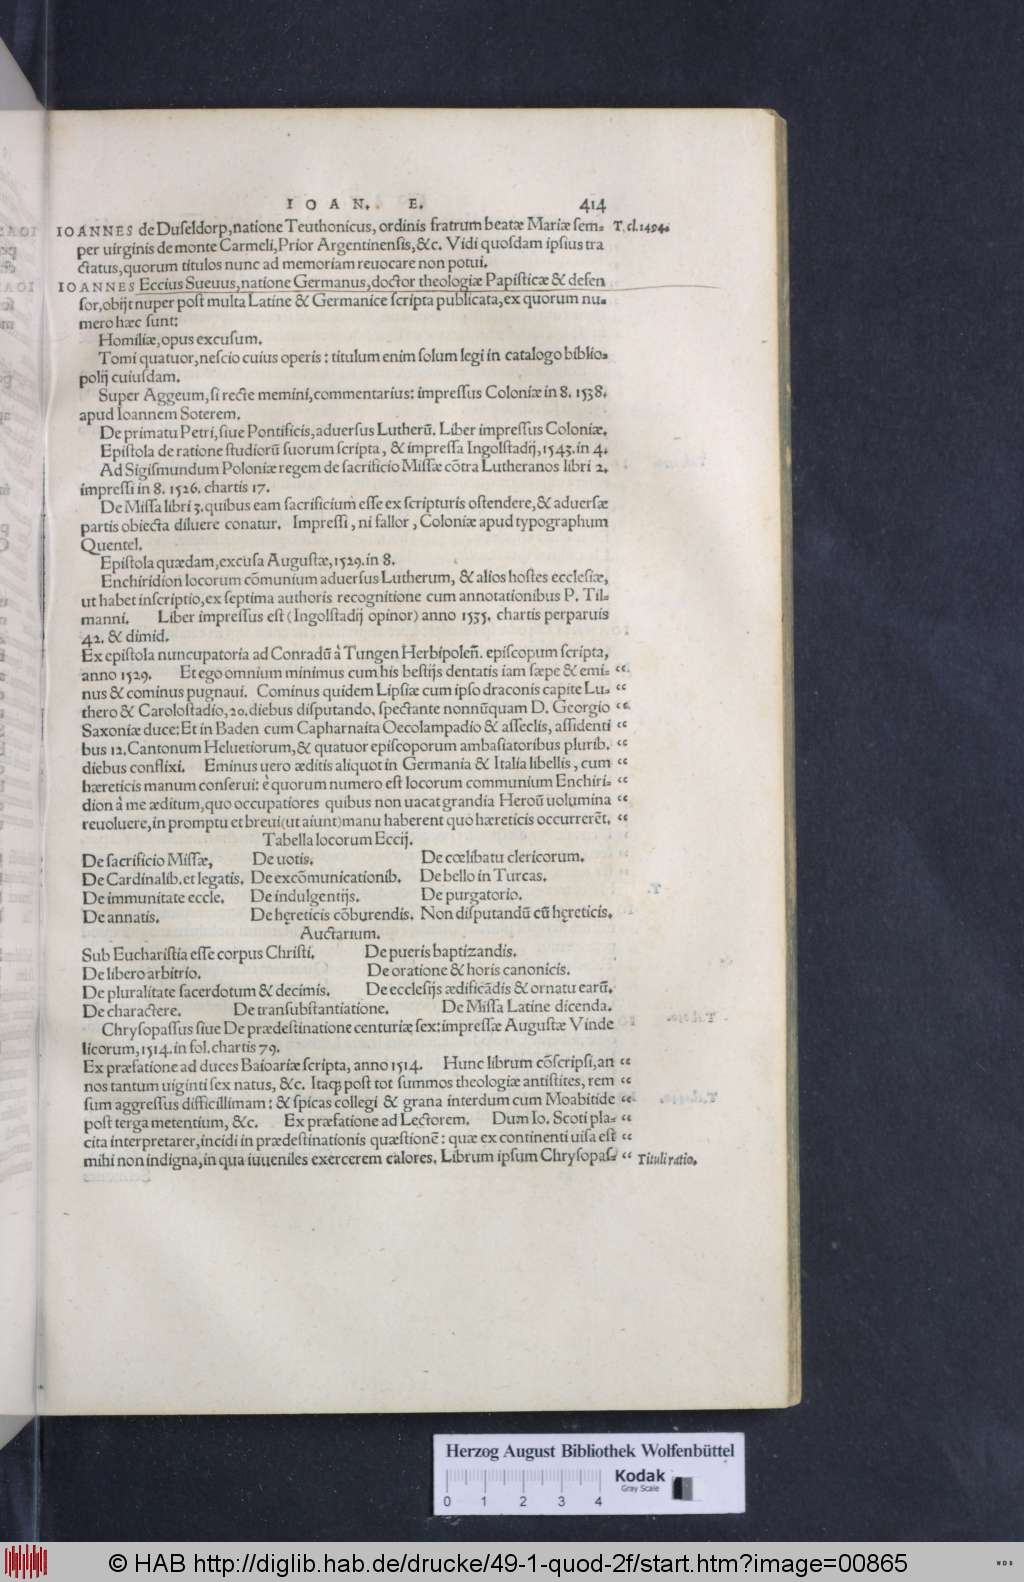 IOAN. E. 414
IOANNES de Duſeldorp, natione Teuthonicus, ordinis fratrum beatæ Mariæ ſem= T. cl. 1494.
per uirginis de monte Carmeli, Prior Argentinenſis, &c. Vidi quoſdam ipſius tra
ctatus, quorum titulos nunc ad memoriam reuocare non potui.
IOANNES Eccius Sueuus, natione Germanus, doctor theologiæ Papiſticæ & defen
ſor, obijt nuper poſt multa Latine & Germanice ſcripta publicata, ex quorum nu=
mero hæc ſunt:
Homiliæ, opus excuſum.
Tomi quatuor, neſcio cuius operis: titulum enim ſolum legi in catalogo biblio=
polij cuiuſdam.
Super Aggeum, ſi recte memini, commentarius: impreſſus Coloniæ in 8. 1538.
apud Ioannem Soterem.
De primatu Petri, ſiue Pontificis, aduerſus Lutherū. Liber impreſſus Coloniæ.
Epiſtola de ratione ſtudiorū ſuorum ſcripta, & impreſſa Ingolſtadij, 1543. in 4.
Ad Sigiſmundum Poloniæ regem de ſacrificio Miſſæ cōtra Lutheranos libri 2.
impreſſi in 8. 1526. chartis 17.
De Miſſa libri 3. quibus eam ſacrificium eſſe ex ſcripturis oſtendere, & aduerſæ
partis obiecta diluere conatur. Impreſſi, ni fallor, Coloniæ apud typographum
Quentel.
Epiſtola quædam, excuſa Auguſtæ, 1529. in 8.
Enchiridion locorum cōmunium aduerſus Lutherum, & alios hoſtes eccleſiæ,
ut habet inſcriptio, ex ſeptima authoris recognitione cum annotationibus P. Til=
manni. Liber impreſſus eſt (Ingolſtadij opinor) anno 1535. chartis perparuis
42. & dimid.
Ex epiſtola nuncupatoria ad Conradū à Tungen Herbipoleñ. epiſcopum ſcripta,
anno 1529. Et ego omnium minimus cum his beſtijs dentatis iam ſæpe & emi= “
nus & cominus pugnaui. Cominus quidem Lipſiæ cum ipſo draconis capite Lu= “
thero & Caroloſtadio, 20. diebus diſputando, ſpectante nonnūquam D. Georgio “
Saxoniæ duce: Et in Baden cum Capharnaita Oecolampadio & aſſeclis, aſſidenti “
bus 12. Cantonum Heluetiorum, & quatuor epiſcoporum ambaſiatoribus plurib. “
diebus conflixi. Eminus uero æditis aliquot in Germania & Italia libellis, cum “
hæreticis manum conſerui: è quorum numero eſt locorum communium Enchiri= “
dion à me æditum, quo occupatiores quibus non uacat grandia Heroū uolumina “
reuoluere, in promptu et breui (ut aiunt) manu haberent quo hæreticis occurrerēt. “
Tabella locorum Eccij.
De ſacrificio Miſſæ, De uotis. De cœlibatu clericorum.
De Cardinalib. et legatis. De excōmunicationib. De bello in Turcas.
De immunitate eccle. De indulgentijs. De purgatorio.
De annatis. De hęreticis cōburendis. Non diſputandū cū hęreticis.
Auctarium.
Sub Euchariſtia eſſe corpus Chriſti. De pueris baptizandis.
De libero arbitrio. De oratione & horis canonicis.
De pluralitate ſacerdotum & decimis. De eccleſijs ædificādis & ornatu earū.
De charactere. De tranſubſtantiatione. De Miſſa Latine dicenda.
Chryſopaſſus ſiue De prædeſtinatione centuriæ ſex: impreſſæ Auguſtæ Vinde
licorum, 1514. in fol. chartis 79.
Ex præfatione ad duces Baioariæ ſcripta, anno 1514. Hunc librum cōſcripſi, an “
nos tantum uiginti ſex natus, &c. Itaq; poſt tot ſummos theologiæ antiſtites, rem “
ſum aggreſſus difficillimam: & ſpicas collegi & grana interdum cum Moabitide “
poſt terga metentium, &c. Ex præfatione ad Lectorem. Dum Io. Scoti pla= “
cita interpretarer, incidi in prædeſtinationis quæſtionē: quæ ex continenti uiſa eſt “
mihi non indigna, in qua iuueniles exercerem calores. Librum ipſum Chryſopaſ= “ Tituli ratio.
Herzog August Bibliothek Wolfenbüttel
Kodak
Gray Scale
0 1 2 3 4
© HAB http://diglib.hab.de/drucke/49-1-quod-2f/start.htm?image=00865